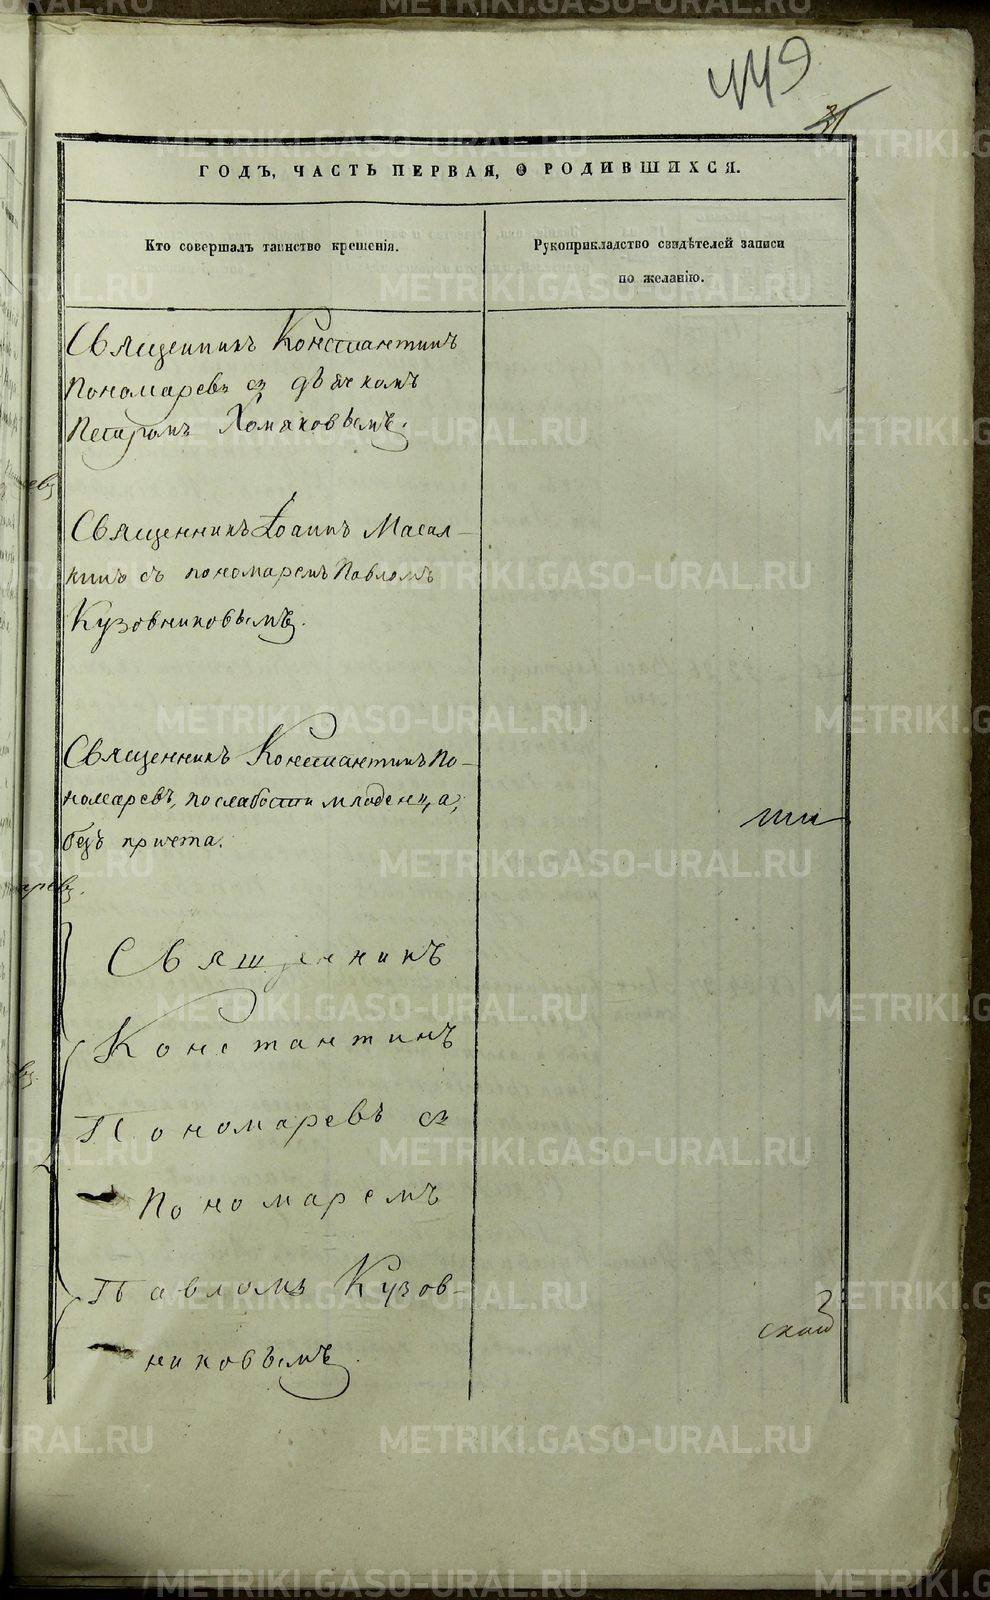 449
31
ГОДЪ, ЧАСТЬ ПЕРВАЯ, О РОДИВШИХСЯ.
Кто совершалъ таинство крещенія.
Рукоприкладство свидѣтелей записи
по желанію.
Священникъ Константинъ
Пономаревъ съ дьячкомъ
Петромъ Хомяковымъ.
Священникъ Іоаннъ Масал-
кинъ съ пономаремъ Павломъ
Кузовниковымъ.
Священникъ Константинъ По-
номаревъ, по слабости младенца,
безъ причета.
Священникъ
Константинъ
Пономаревъ съ
Пономаремъ
Павломъ Кузов-
никовымъ.
METRIKI.GASO-URAL.RU